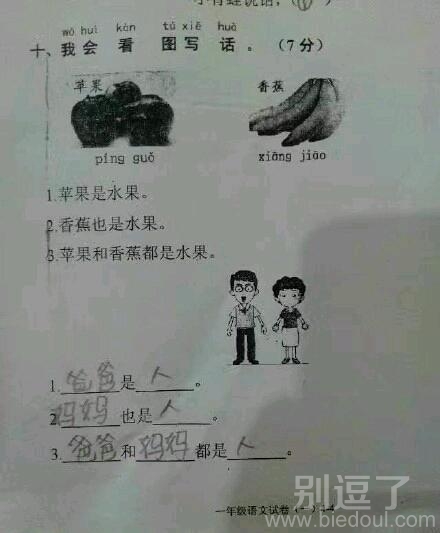 小青蛙说话,(
wǒ huì kàn tú xiě huà
十、我会看图写话。(7分)
苹果 香蕉
píng guǒ xiāng jiāo
1.苹果是水果。
2.香蕉也是水果。
3.苹果和香蕉都是水果。
1.爸爸是人。
2.妈妈也是人。
3.爸爸和妈妈都是人。
一年级语文试卷(一)-4
别逗了
www.biedoul.com